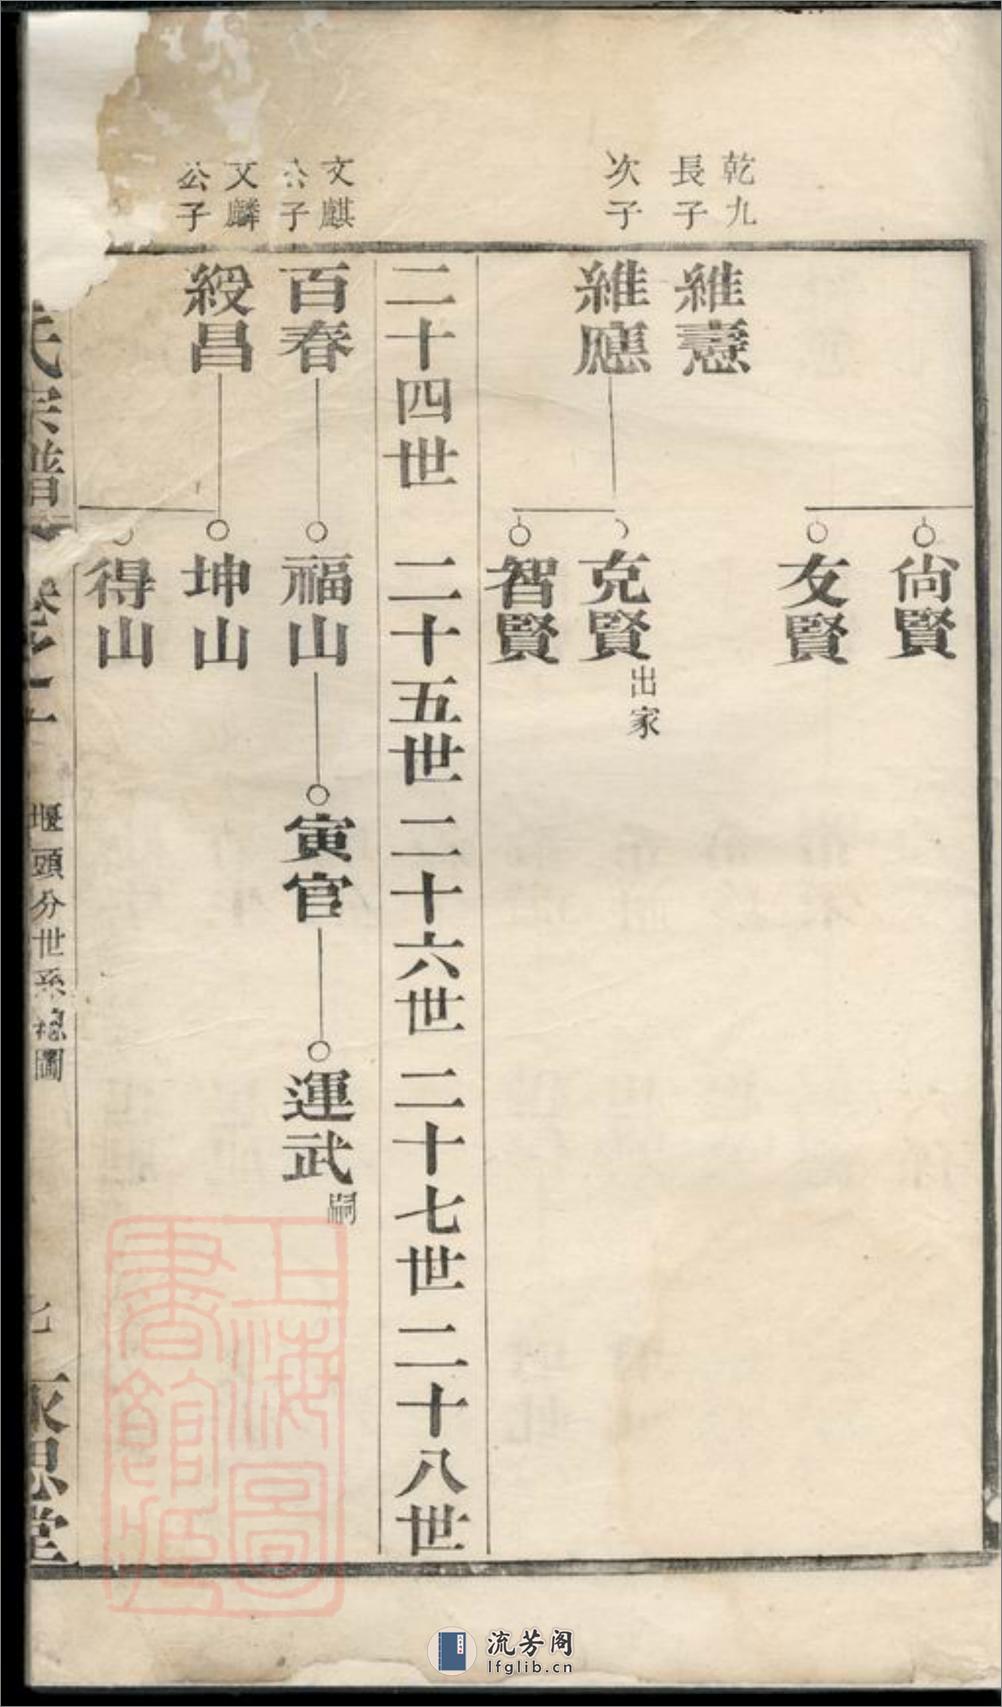 乾九
長子
維憲
次子
維應
尙賢
友賢
克賢
出家
智賢
二十四世
二十五世
二十六世
二十七世
二十八世
文麒
公子
百春
福山
寅官
運武
嗣
文麟
公子
綬昌
坤山
得山
氏宗譜
卷之
堰頭分世系總圖
七
永思堂
上海圖
書館藏
流芳阁
lfglib.cn